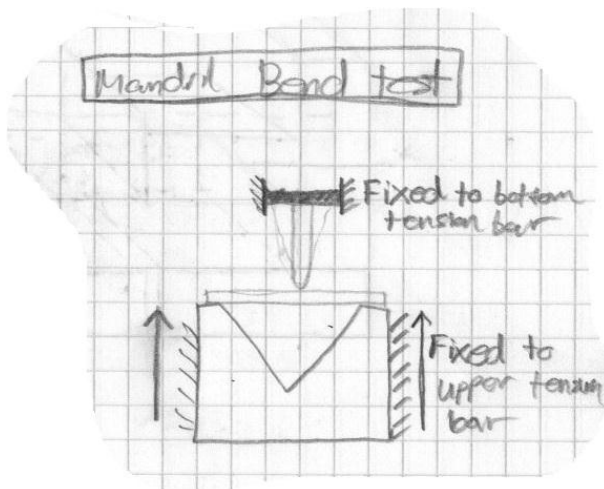 Mandril Bend test
Fixed to bottom
tension bar
Fixed to
upper tension
bar